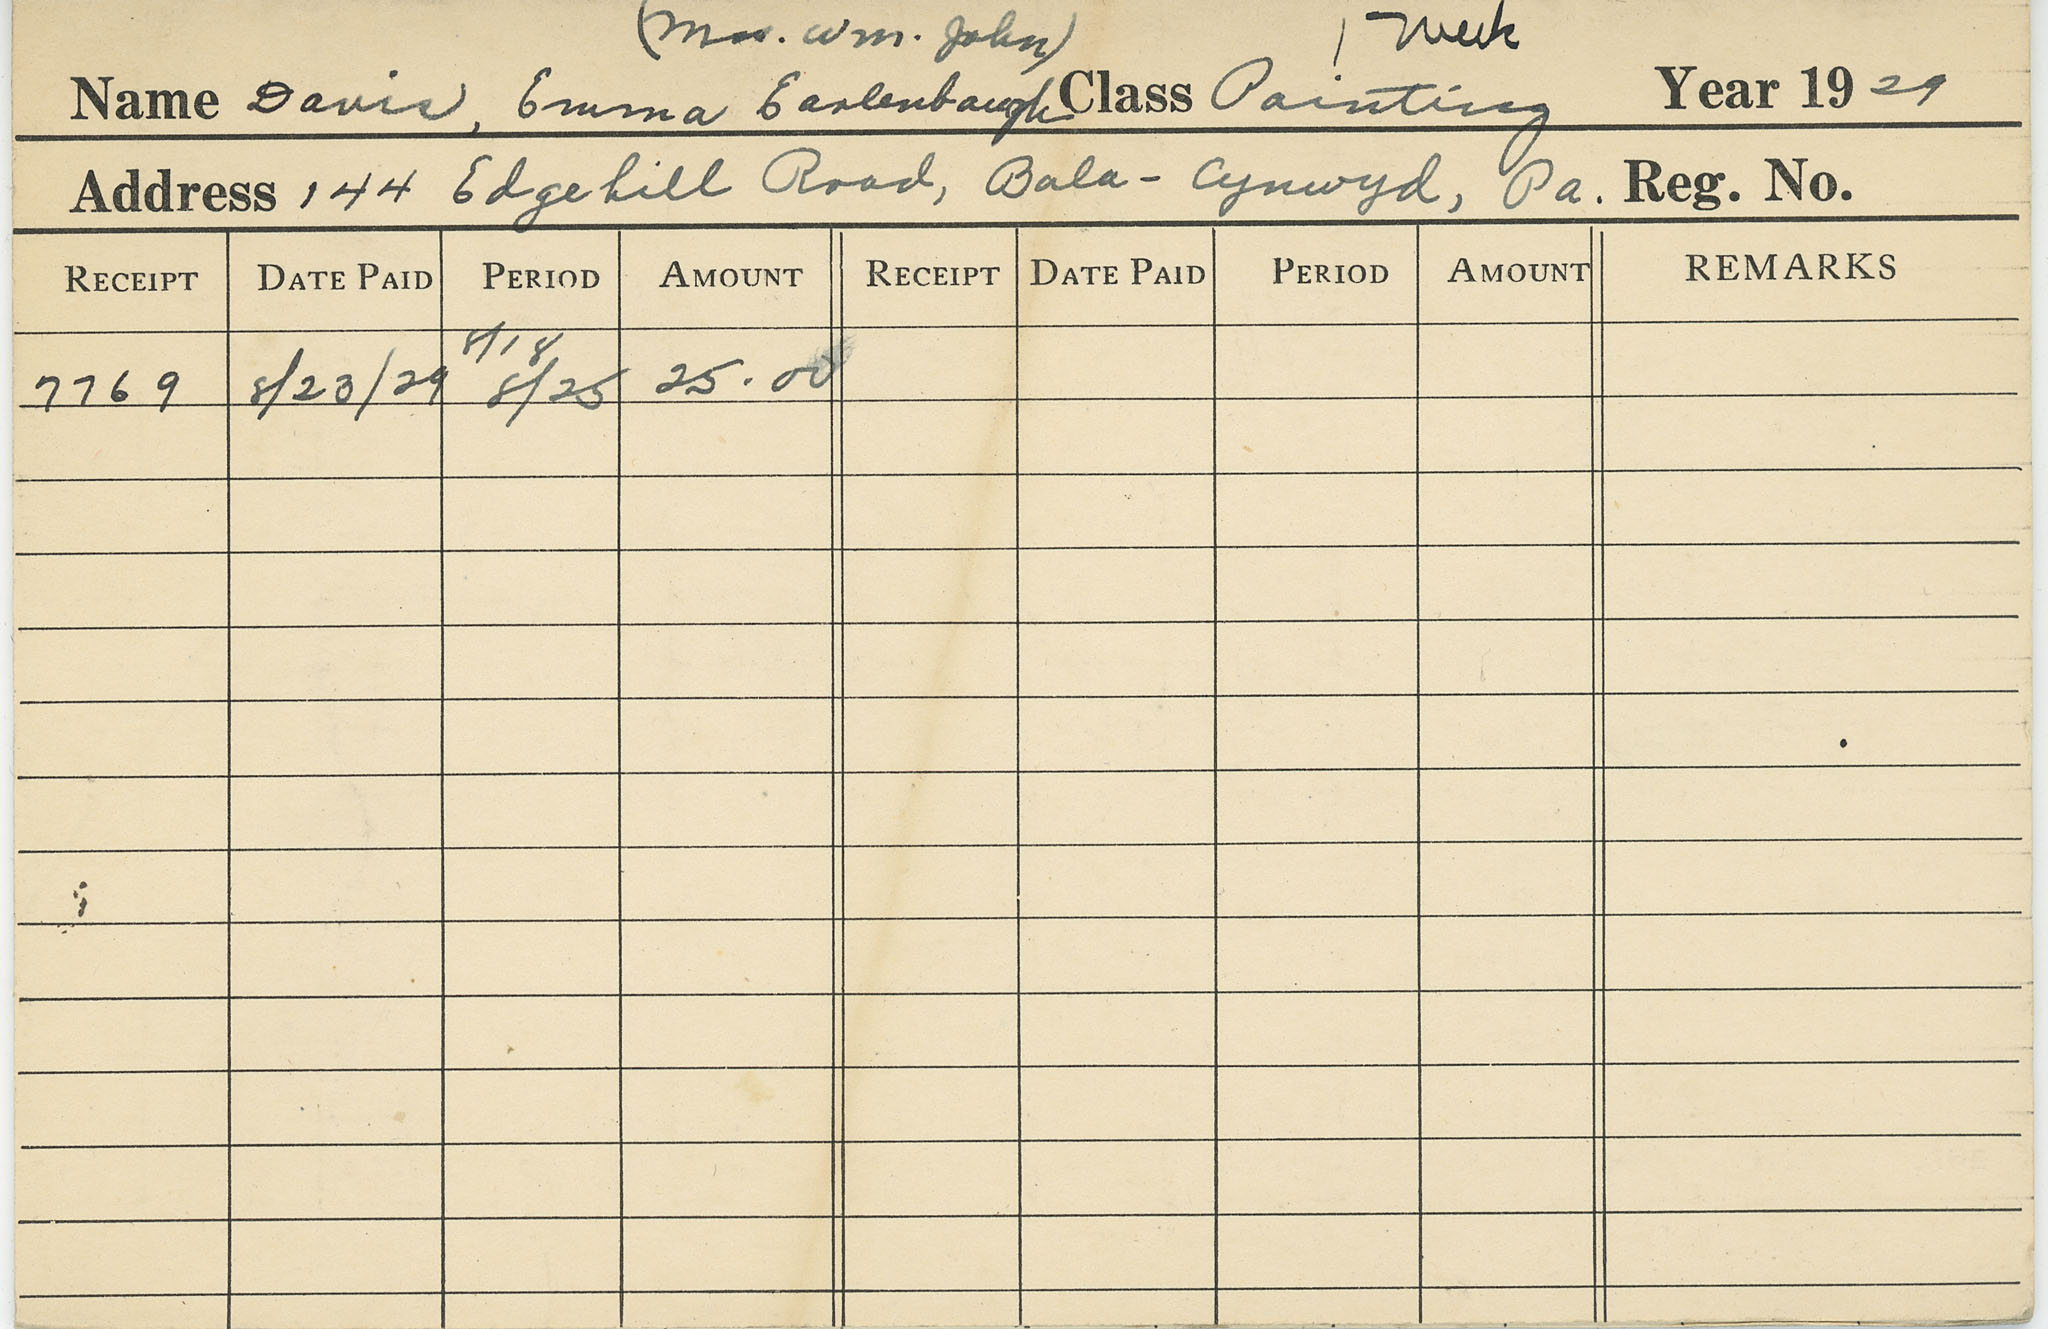 (Mrs. Wm. John) 1 Week
Name Davis, Emma Earlenbaugh Class Painting Year 19 29
Address 144 Edgehill Road, Bala-Cynwyd, Pa. Reg. No.
RECEIPT DATE PAID PERIOD AMOUNT RECEIPT DATE PAID PERIOD AMOUNT REMARKS
8/18
7769 8/23/29 8/25 25.00